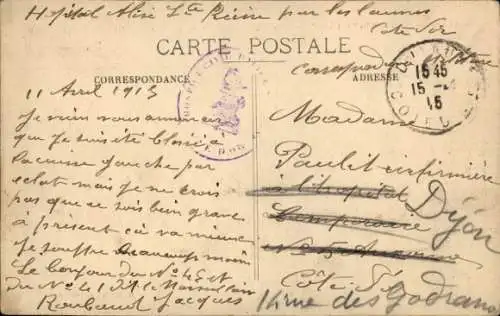 Hôpital Alise Ste Reine par les Laumes
Côte d'Or
CARTE POSTALE
Correspondance militaire
CORRESPONDANCE
ADRESSE
15 45
15 - 4
15
COTE D'OR
11 Avril 1915
Je viens vous annoncer
que Je suis été Blessé a
la cuisse gauche par
eclat mais Je ne crois
pas que ce soit bien grave
à présent ça va mieux
Je souffre Beaucoup moins
Le bonjour du No 45 et
du No 41 dit le Marseillais
Roubaud Jacques
Madame
Paulit infirmière
à l'hopital
temporaire
Dijon
Côte d'Or
1 rue des Godrans